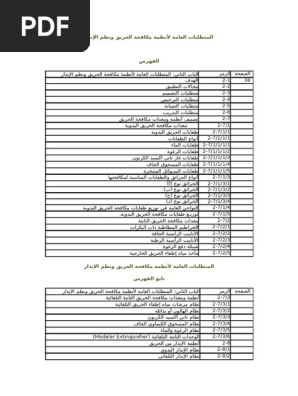 PDF
المتطلبات العامة لأنظمة مكافحة الحريق ونظم الإنذار
الفهرس
الباب الثاني: المتطلبات العامة لأنظمة مكافحة الحريق ونظم الإنذار الرمز الصفحة
الهدف 2-1 39
مجالات التطبيق 2-2
متطلبات التصميم 2-3
متطلبات الترخيص 2-4
متطلبات الصيانة 2-5
متطلبات التدريب 2-6
تصنيف أنظمة ومعدات مكافحة الحريق 2-7
معدات مكافحة الحريق اليدوية 2-7/1
طفايات الحريق اليدوية 2-7/1/1
أنواع الطفايات 2-7/1/1/1
طفايات الماء 2-7/1/1/1/1
طفايات الرغوة 2-7/1/1/1/2
طفايات غاز ثاني أكسيد الكربون 2-7/1/1/1/3
طفايات المسحوق الجاف 2-7/1/1/1/4
طفايات السوائل المتبخرة 2-7/1/1/1/5
أنواع الحرائق والطفايات المناسبة لمكافحتها 2-7/1/3
الحرائق نوع (أ) 2-7/1/3/1
الحرائق نوع (ب) 2-7/1/3/2
الحرائق نوع (ج) 2-7/1/3/3
الحرائق نوع (د) 2-7/1/3/4
النواحي العامة في توزيع طفايات مكافحة الحريق اليدوية 2-7/1/4
توزيع طفايات مكافحة الحريق اليدوية. 2-7/1/5
معدات مكافحة الحريق الثابتة 2-7/2
الخراطيم المطاطية ذات البكرات 2-7/2/1
الأنابيب الرأسية الجافة 2-7/2/2
الأنابيب الرأسية الرطبة 2-7/2/3
شبكة دفع الرغوة 2-7/2/4
مأخذ مياه إطفاء الحريق الخارجية 2-7/2/5
المتطلبات العامة لأنظمة مكافحة الحريق ونظم الإنذار
تابع الفهرس
الباب الثاني: المتطلبات العامة لأنظمة مكافحة الحريق ونظم الإنذار الرمز الصفحة
أنظمة ومعدات مكافحة الحريق الثابتة التلقائية 2-7/3
نظام مرشات مياه إطفاء الحريق التلقائية 2-7/3/1
نظام الهالون أو بدائله 2-7/3/2
نظام ثاني أكسيد الكربون 2-7/3/3
نظام المسحوق الكيماوي الجاف 2-7/3/4
نظام الرغوة والماء 2-7/3/5
الوحدات الثابتة التلقائية (Modeler Extinguisher) 2-7/3/6
أنظمة الإنذار من الحريق 2-8
نظام الإنذار اليدوي 2-8/1
نظام الإنذار التلقائي 2-8/2